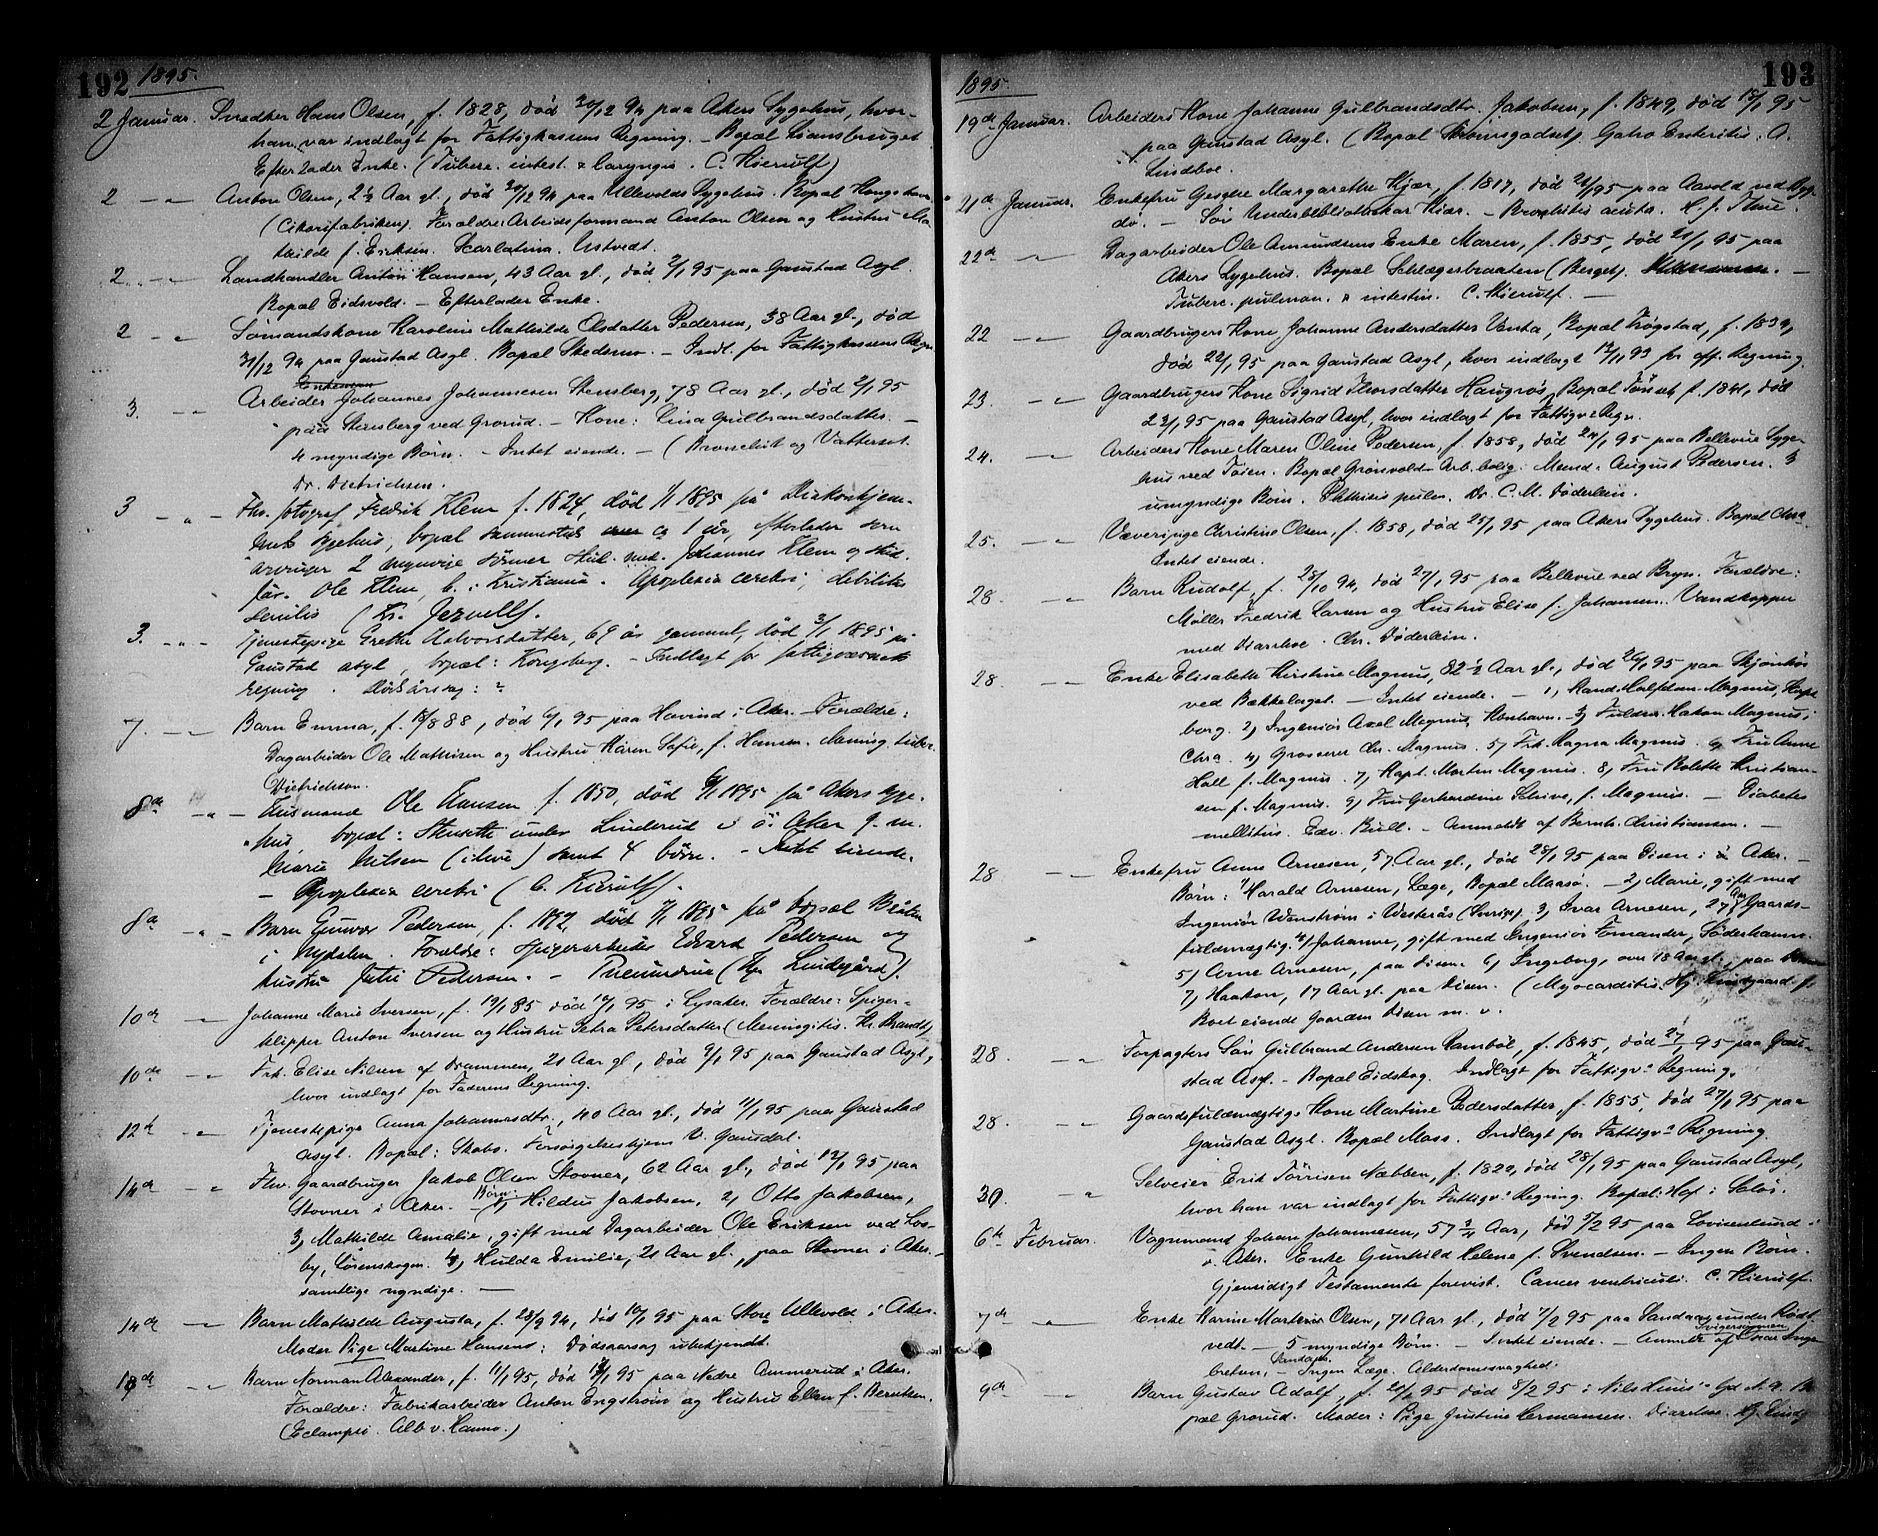 192 1895.
2 Januar. Snedker Hans Olsen, f. 1828, død 30/12 94 paa Akers Sygehus, hvor-
han var indlagt for Fattigkassens Regning. - Bopæl Liansbruget
Efterlader Enke. (Tuberc. intest. & laryngis. C. Kierulf)
2 - " - Anton Olsen, 2½ Aar gl., død 30/12 94 paa Ullevolds Sygehus. Bopæl
(Cikorifabriken). Forældre: Arbeidsformand Anton Olsen og Hustru Ma-
thilde f. Eriksen. Scarlatina. Ustvedt.
2. - " - Landhandler Anton Hansen, 43 Aar gl., død 2/1 95 paa Gaustad Asyl.
Bopæl Eidsvold. - Efterlader Enke.
2 - " Sømandskone Karoline Mathilde Olsdatter Pedersen, 38 Aar gl., død
31/12 94 paa Gaustad Asyl. Bopæl Skedsmo. - Indl. for Fattigkassens Regn.
3. - " - Arbeider Johannes Johannesen Stensberg, 78 Aar gl., død 2/1 95
paa Stensberg ved Grorud. - Kone: Lina Gulbrandsdatter. -
4 myndige Børn. - Intet eiende. - (Bronchit og Vattersot.
Dr. Dietrichsen.
3 - " - Fhv. fotograf Fredrik Klem f. 1824, død 1/1 1895 på Diakonhjem-
mets sygehus, bopæl sammested ca 1 år, efterlader som
arvinger 2 myndige sønner Stud. med. Johannes Klem og stud.
jur. Ole Klem, b. i Kristiania. Apoplexia cerebri, debilitas
senilis
3. - " - Tjenestepige Grethe Halvorsdatter, 69 år gammel, død 3/1 1895 på
Gaustad asyl, bopæl: Kongsberg. - Indlagt for fattigvæsenets
regning. Dødsårsag: ?
7. - " - Barn Emma, f. 18/8 88, død 6/1 95 paa Hovind i Aker. - Forældre:
Dagarbeider Ole Mathisen og Hustru Karen Sofie, f. Hansen. Mening. tuber.
Dietrichson.
8de - " - Husmand Ole Hansen f. 1850, død 6/1 1895 på Akers syge-
hus, bopæl: Stensette under Linderud i Aker g. m.
Marie Nilsen (i live) samt 4 børn. - Intet eiende.
- Apoplexia cerebri (C. Kierulf).
8de - " - Barn Gunvor Pedersen, f. 1892, død 7/1 1895 på bopæl Bråten
i Nydalen. Forældre: Spigerarbeider Edvard Pedersen og
hustru Julie Pedersen. - Pneumonie (Hj. Lindgård).
10de - " - Johanne Marie Iversen, f. 19/1 85 død 10/1 95 i Lysaker. Forældre: Spiger-
klipper Anton Iversen og Hustru Petra Petersdatter (Meningitis. Kr. Brandt)
10de - " - Frk. Elise Nilsen af Drammen, 21 Aar gl., død 9/1 95 paa Gaustad Asyl,
hvor indlagt for Faderens Regning.
12te - " - Tjenestepige Anna Johannesdtr., 40 Aar gl., død 11/1 95 paa Gaustad
Asyl. Bopæl: Skabo. Forsørgelseshjem V. Gausdal.
14de - " Fhv. Gaardbruger Jakob Olsen Stovner, 62 Aar gl., død 12/1 95 paa
Stovner i Aker. - Børn: 1) Hildus Jakobsen, 2) Otto Jakobsen,
3) Mathilde Amalie, gift med Dagarbeider Ole Eriksen ved Los-
by, Lørenskogen. 4) Hulda Emilie, 21 Aar gl., paa Stovner i Aker. -
samtlige myndige. -
14de - " - Barn Mathilde Augusta, f. 28/9 94, død 10/1 95 paa Store Ullevold i Aker.
Moder Pige Martine Hansens: Dødsaarsag ubekjendt.
18de - " - Barn Norman Alexander, f. 11/1 95, død 13/1 95 paa Nedre Ammerud i Aker.
Forældre: Fabrikarbeider Anton Engstrøm og Hustru Ellen f. Berntsen.
(Eclampsi. Alb v. Hanno.)
1895. 193
19de Januar. Arbeiders Kone Johanne Gulbrandsdtr. Jakobsen, f. 1849, død 18/1 95
paa Gaustad Asyl. (Bopæl Gastro Enteritis. A.
Lindboe.
21de Januar. Enkefru Gesche Margarethe Kjær, f. 1817, død 21/1 95 paa Aavold ved Byg-
dø. - Søn Underbibliothekar Kjær. - Bronchitis acuta. H. J. Thue.
22de - " - Dagarbeider Ole Amundsens Enke Maren, f. 1855, død 21/1 95 paa
Akers Sygehus. Bopæl Schlægerbraaten (Berget). -
Tuberc. pulmon. & intestin. C. Kierulf. -
22 - " - Gaardbrugers Kone Johanne Andersdatter Vanta, Bopæl Trøgstad, f. 1839,
død 22/1 95 paa Gaustad Asyl, hvor indlagt 12/1 93 for off. Regning.
23. - " - Gaardbrugers Kone Sigrid Thorsdatter Haugrøs, Bopæl Tønset, f. 1841, død
23/1 95 paa Gaustad Asyl, hvor indlagt for Fattigv. Regn.
24. - " - Arbeiders Kone Maren Oline Pedersen, f. 1858, død 24/1 95 paa Bellevue Syge-
hus ved Tøien. Bopæl Grønvold Arb. bolig. Mand: August Pedersen. 3
umyndige Børn. Phthisis pulm. Dr. C. M. Døderlein.
25. - " - Væverpige Christine Olsen, f. 1858, død 25/1 95 paa Akers Sygehus. Bopæl Chra.
Intet eiende.
28. - " - Barn Rudolf, f. 28/10 94, død 27/1 95 paa Bellevue ved Bryn. Forældre:
Møller Fredrik Larsen og Hustru Elise f. Johansen. Vandkopper
med Diarrhoe. Chr. Døderlein.
28. - " - Enke Elisabeth Kirstine Magnus, 82½ Aar gl., død 26/1 95 paa
ved Bækkelaget. - Intet eiende. - 1) Kand. Halfdan Magnus,
borg. 2) Ingeniør Axel Magnus, Kbnhavn. - 3) Fuldm. Hakon Magnus,
Chra. 4) Grosserer Chr. Magnus. 5) Frk. Ragna Magnus. 6) Fru Anne
Holl f. Magnus. 7) Kapt. Morten Magnus. 8) Fru Bolette Kristian-
sen f. Magnus. 9) Fru Gerhardine Schive, f. Magnus. - Diabetes
mellitus. Edv. Bull. - Anmeldt af Bernh. Christiansen. -
28 - " - Enkefru Anna Arnesen, 57 Aar gl., død 28/1 95 paa Disen i Aker. -
Børn: 1) Harald Arnesen, Læge, Bopæl Maasø. - 2) Marie, gift med
Ingeniør Wenstrøm i Westerås (Sverige). 3) Ivar Arnesen, 27 Aar, Gaards-
fuldmægtig. 4) Johanne, gift med Ingeniør Fornander, Söderhamn.
5) Arne Arnesen, paa Disen. 6) Ingeborg, over 18 Aar gl., paa Disen
7) Haakon, 17 Aar gl. paa Disen. (Myocarditis. Hj. Lindgaard.)
Boet eiende Gaarden Disen m. v.
28. - " Forpagters Søn Gulbrand Andersen Rambøl, f. 1845, død 27/1 95 paa Gau-
stad Asyl. - Bopæl Eidskog. Indlagt for Fattigv.s Regning.
28. - " - Gaardsfuldmægtigs Kone Martine Pedersdatter, f. 1855, død 27/1 95 paa
Gaustad Asyl. Bopæl Moss. Indlagt for Fattigv.s Regning.
30. " Selveier Erik Tørrisen Næbben, f. 1820, død 28/1 95 paa Gaustad Asyl,
hvor han var indlagt for Fattigv.s Regning. Bopæl: Hof i Soløs.
6te Februar. Vognmand Johan Johannesen, 57¾ Aar, død 5/2 95 paa Lovisenlund i
v. Aker. Enke Gunhild Helene f. Svendsen. - Ingen Børn.
Gjensidigt Testamente forevist. Cancer ventriculi. C. Kierulf.
7de - " Enke Karine Olsen, 71 Aar gl., død 7/2 95 paa Sandaas under Rødt-
vedt. - 5 myndige Børn. - Intet eiende. - Anmeldt af Svigersønnen
bretsen, Sandaas. - Ingen Læge. Alderdomssvaghed.
9de - " - Barn Gustav Adolf, f. død 8/2 95 i Bo-
pæl Grorud. Moder: Pige Justine Hermansen. Diarrhoe. Hj. Lindg.